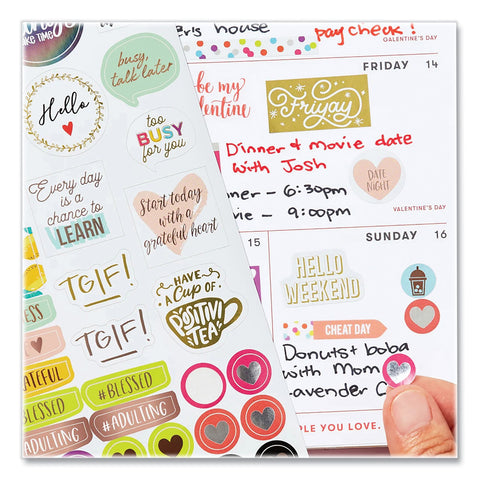 TAKE TIME
busy,
talk later
Hello
too
BUSY
for you
Every day
is a
chance to
LEARN
Start today
with a
grateful heart
TGIF!
TGIF!
HAVE
A CUP OF
POSITIVI
TEA
#BLESSED
#BLESSED
#ADULTING
#ADULTING
house
paycheck!
GALENTINE'S DAY
FRIDAY 14
be my
valentine
Friyay
Dinner & movie date
with Josh
DATE
NIGHT
6:30pm
9:00pm
VALENTINE'S DAY
15
SUNDAY 16
HELLO
WEEKEND
CHEAT DAY
Donuts + boba
with Mom
Lavender
PLE YOU LOVE.